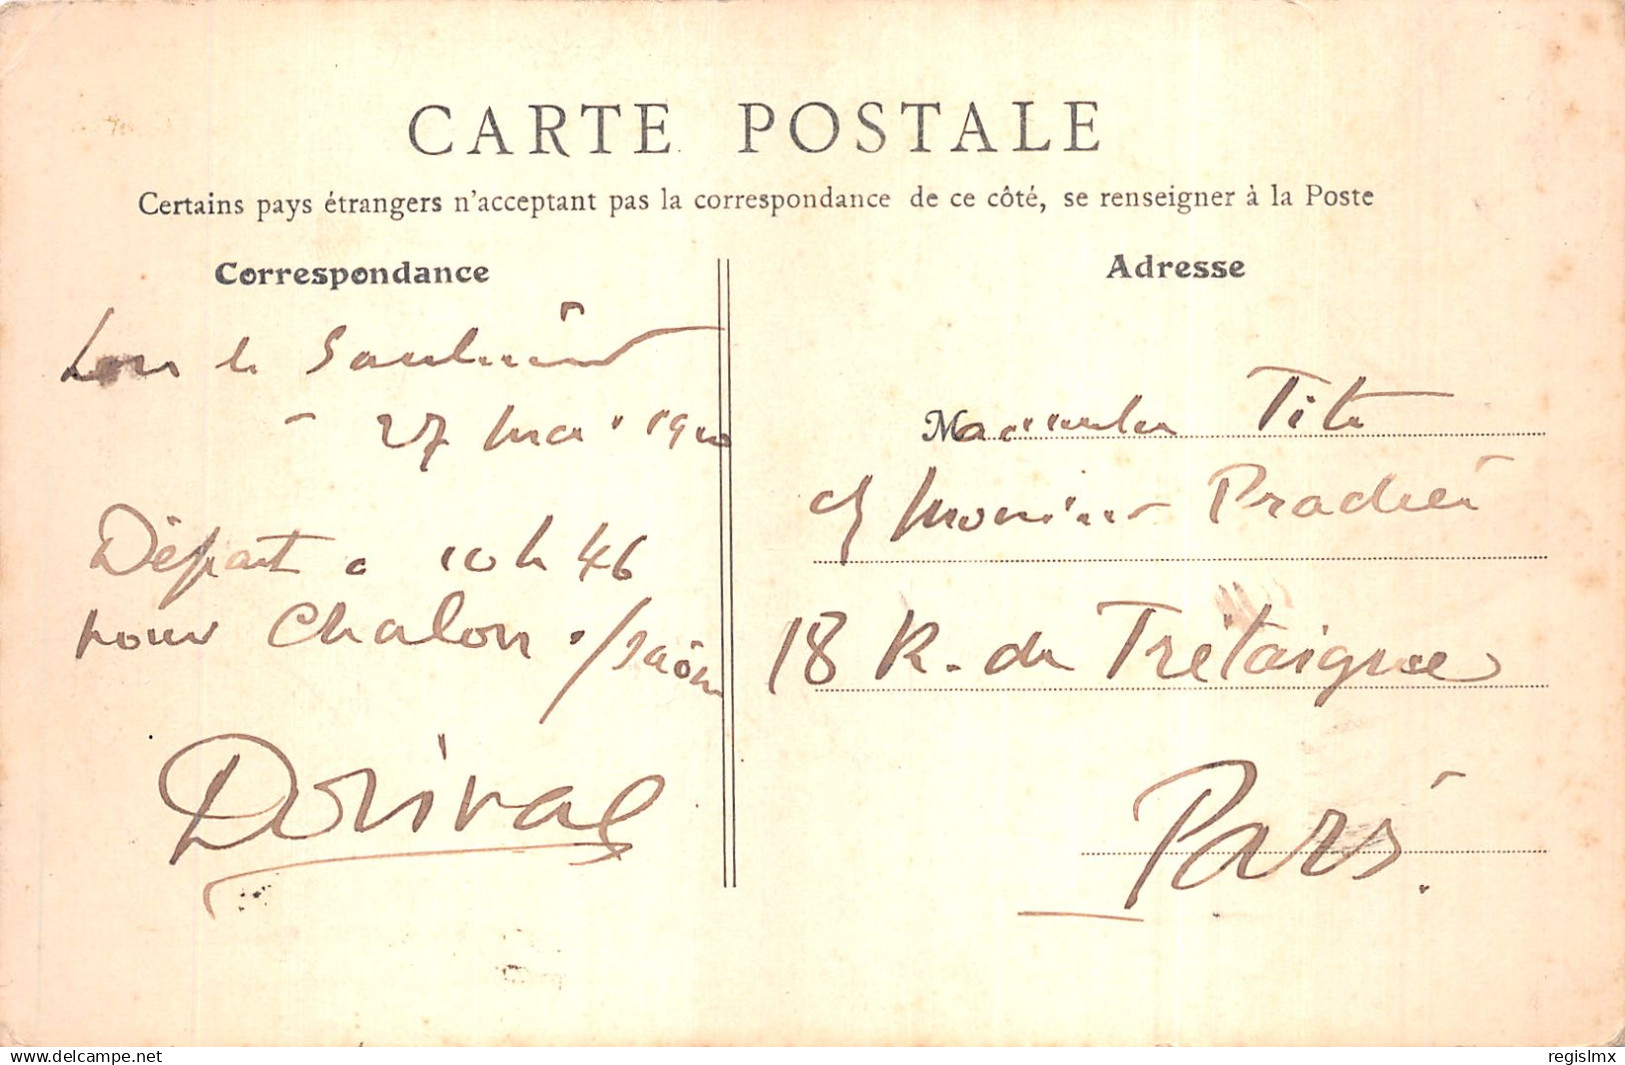 CARTE POSTALE
Certains pays étrangers n'acceptant pas la correspondance de ce côté, se renseigner à la Poste
Correspondance
Lons le Saulnier
- 27 mai 1910
Départ à 10 h 46
pour Chalon s/Saône
Dorival
Adresse
Tite
Monsieur Pradier
18 R. de Trétaigne
Paris.
www.delcampe.net
regislmx